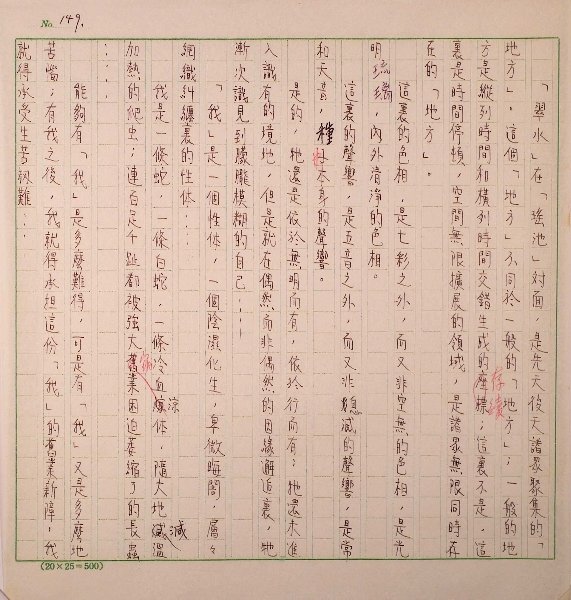 No. 149.
「翠水」在「瑤池」對面，是先天後天諸眾聚集的「
地方」。這個「地方」不同於一般的「地方」；一般的地
方是縱列時間和橫列時間交錯生成的座標；這裏不是，這
存續
裏是時間停頓，空間無限擴展的領域，是諸眾無限同時存
在的「地方」。
這裏的色相，是七彩之外，而又非空無的色相，是光
明琉璃，內外清淨的色相。
這裏的聲響，是五音之外，而又非熄滅的聲響，是常
和天音，種性本身的聲響。
是的，牠還是依於無明而有，依於行而有；牠還未進
入識有的境地，但是就在偶然而非偶然的因緣邂逅裏，牠
漸次識見到朦朧模糊的自己……
「我」是一個性體，一個陰濕化生，卑微晦闇，層々
網織糾纏裏的性體……
我是一條蛇，一條白蛇，一條冷血涼體，隨大地減溫
加熱的爬虫；連百足千趾都被強大宿業困迫萎縮了的長蟲
……
能夠有「我」是多麼難得，可是有「我」又是多麼地
苦惱；有我之後，我就得承担這份「我」的舊業新障，我
就得承受生苦劫難……
(20×25=500)